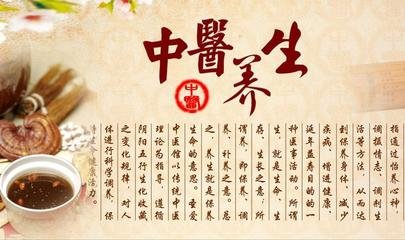 中醫养生
中醫
指通过怡养心神、
调摄情志、调剂生
活等方法,从而达
到保养身体、减少
疾病、增进健康、
延年益寿目的的一
种医事活动。所谓
生,就是生命、生
存、生长之意;所
谓养,即保养、调
养、补养之意。总
之,养生就是保养
生命的意思。圣爱
中医馆以传统中医
理论为指导,遵循
阴阳五行生化收藏
之变化规律,对人
体进行科学调养,保
持生命健康活力。